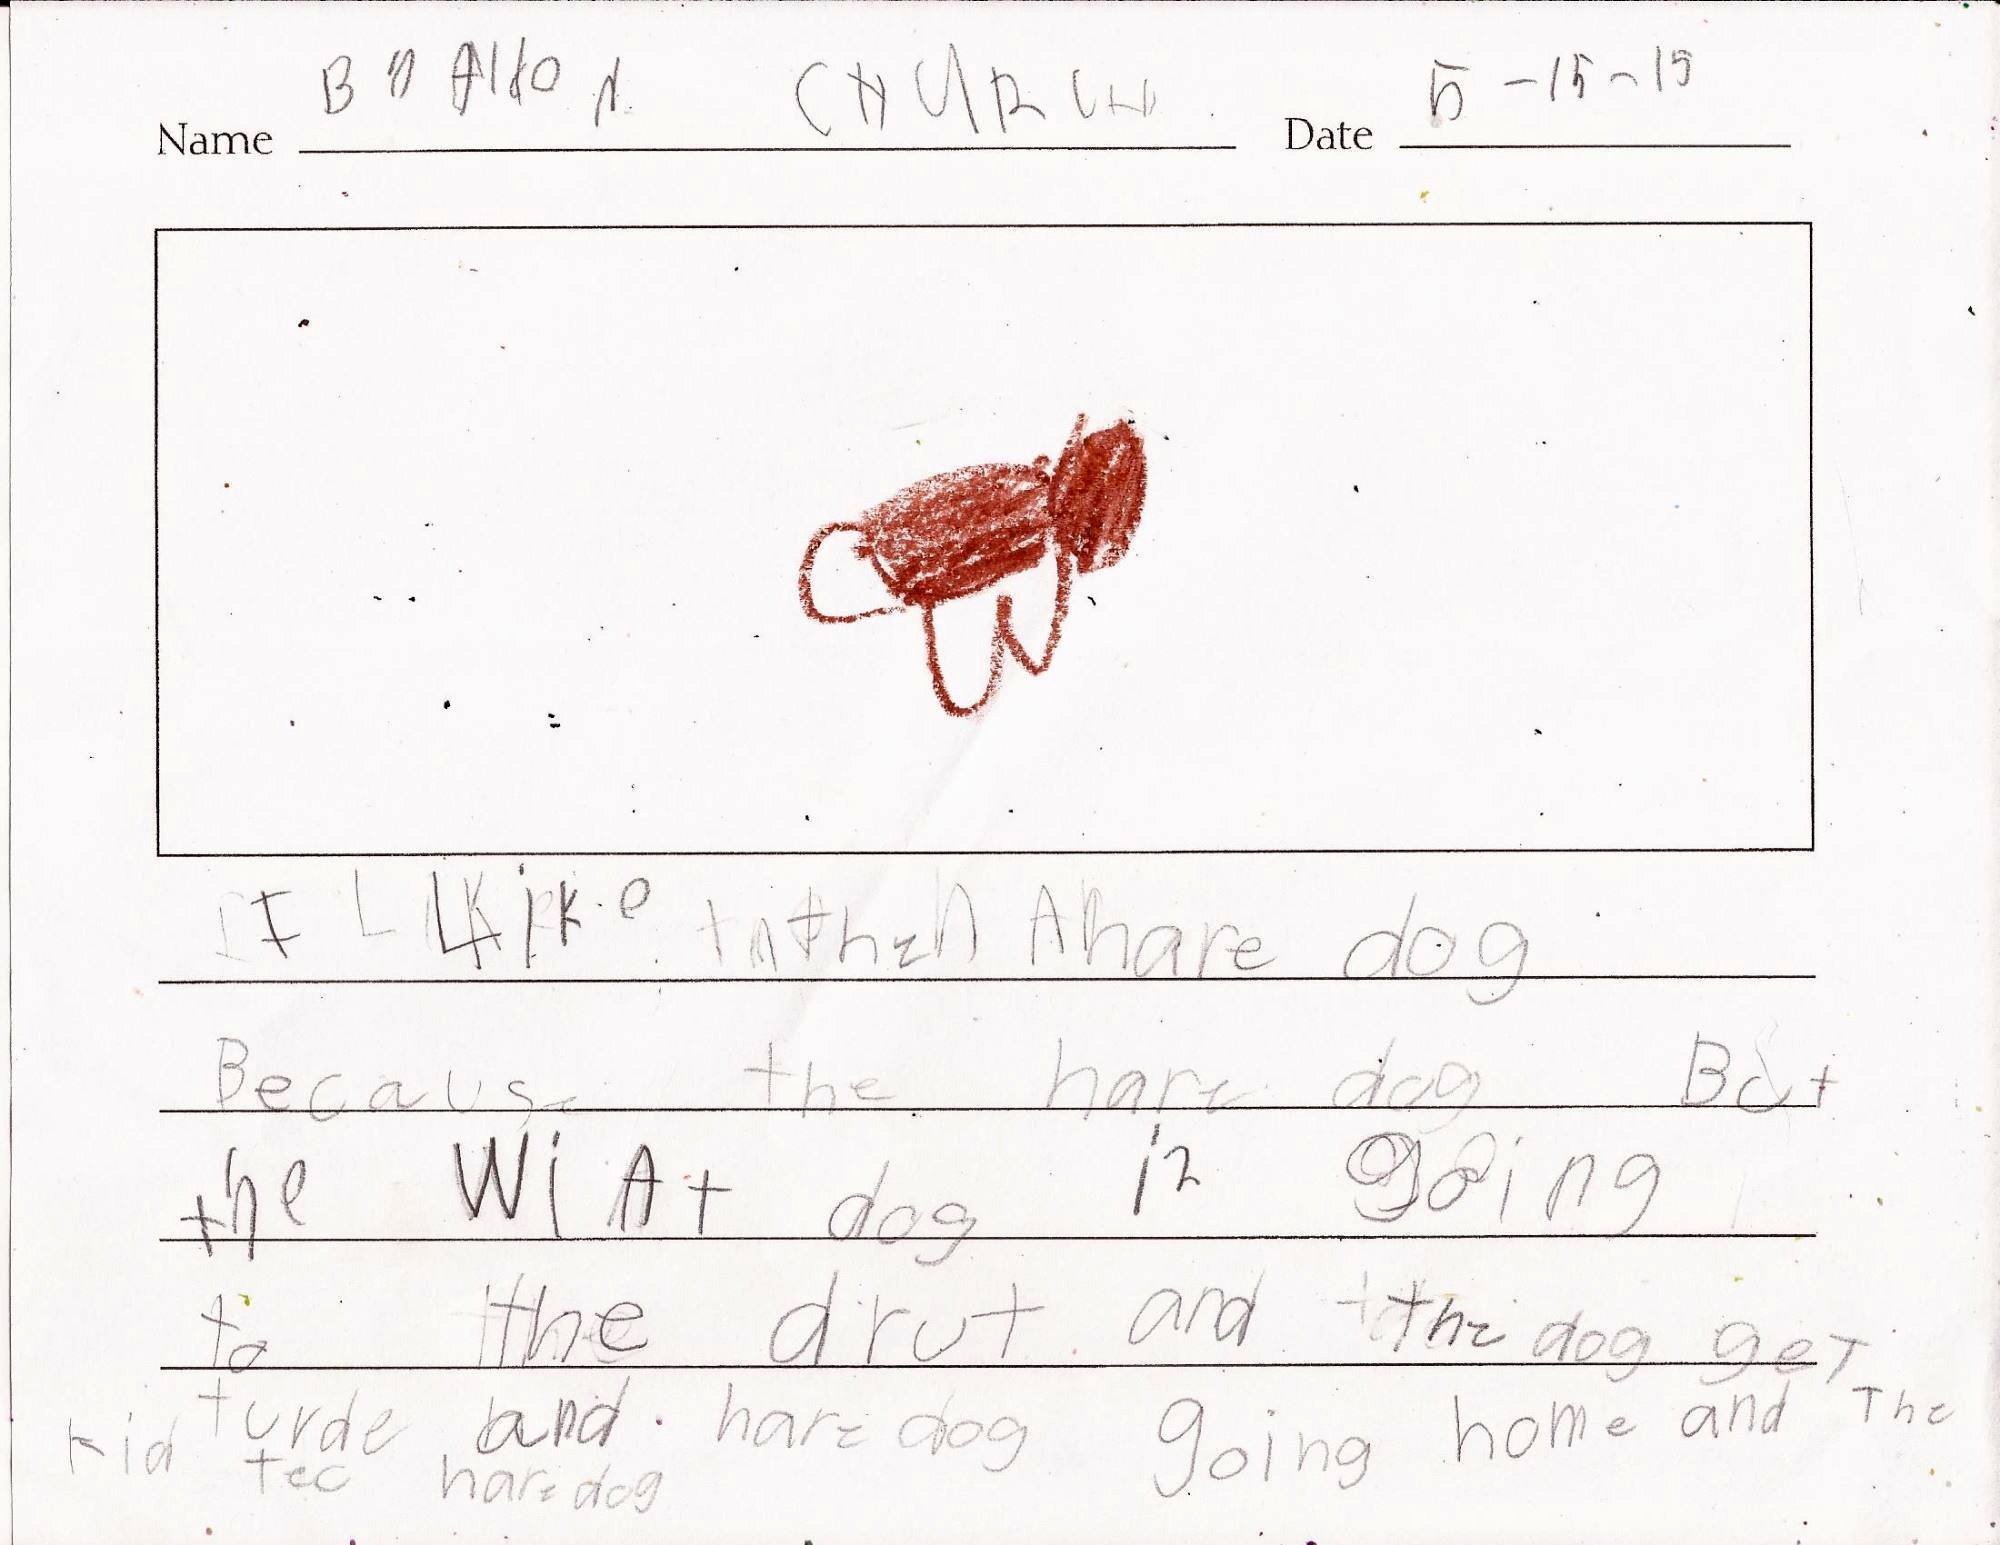 Name CHURCH Date 5-15-15
I Like then A hare dog
Because the hare dog But
the WiAt dog in going
to the drut and the dog geT
turde and hare dog going home and The
kid tec hare dog